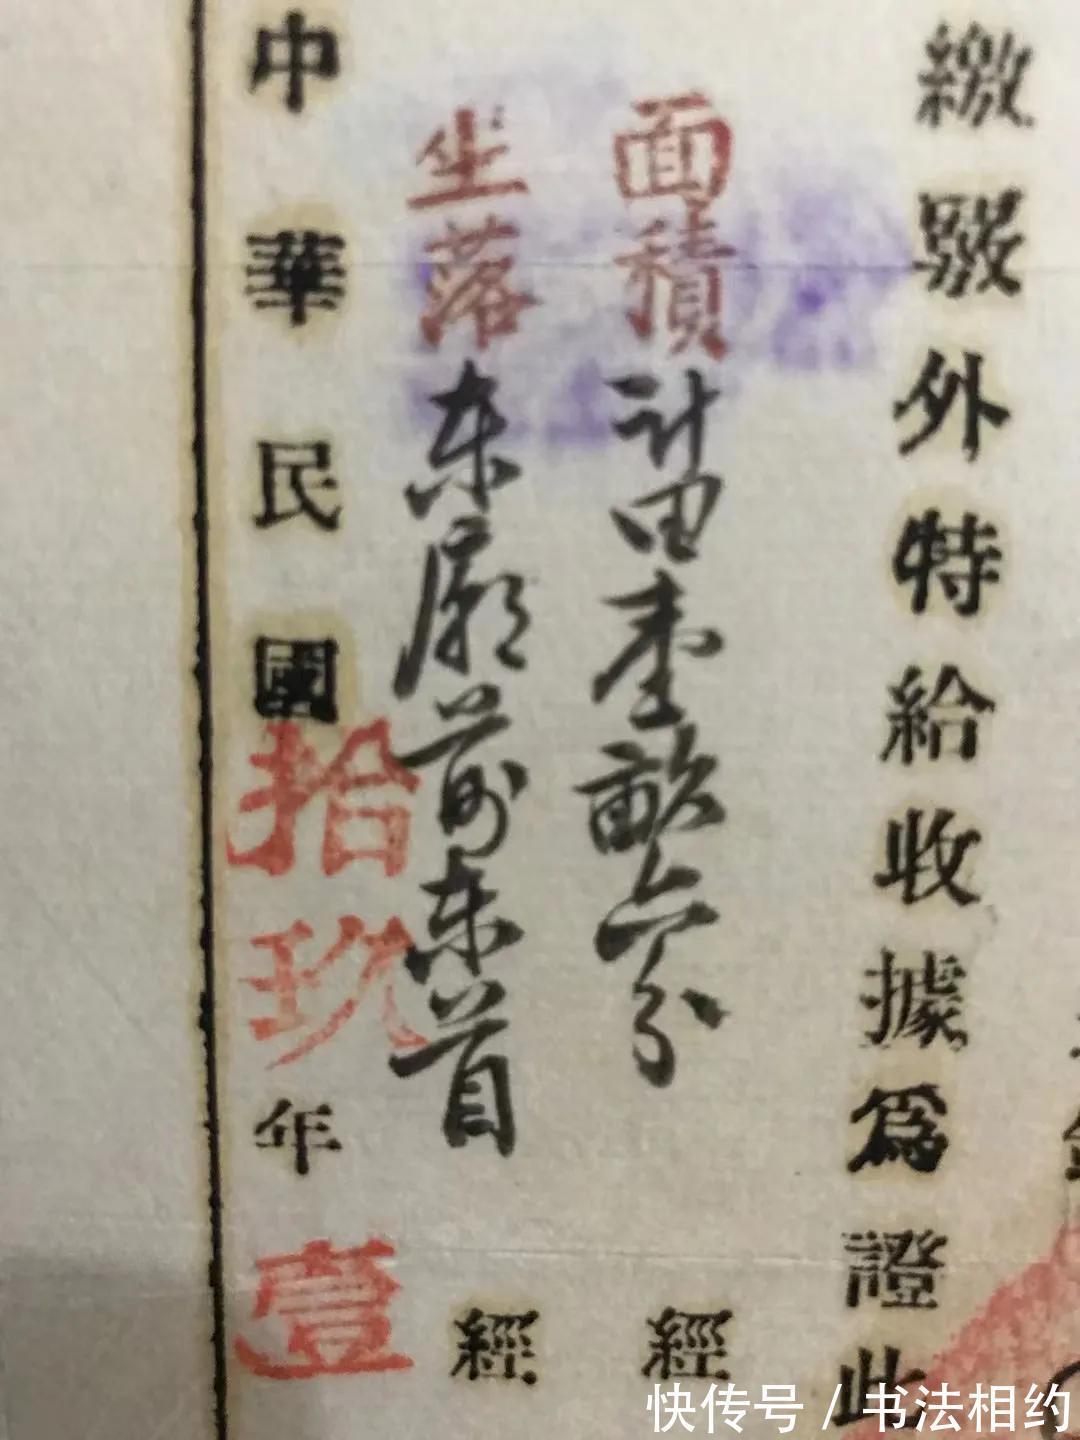 繳驗外特給收據爲證此
面積計田壹畝六分
經
坐落东廟前东首
經
中華民國拾玖年壹
快传号/书法相约